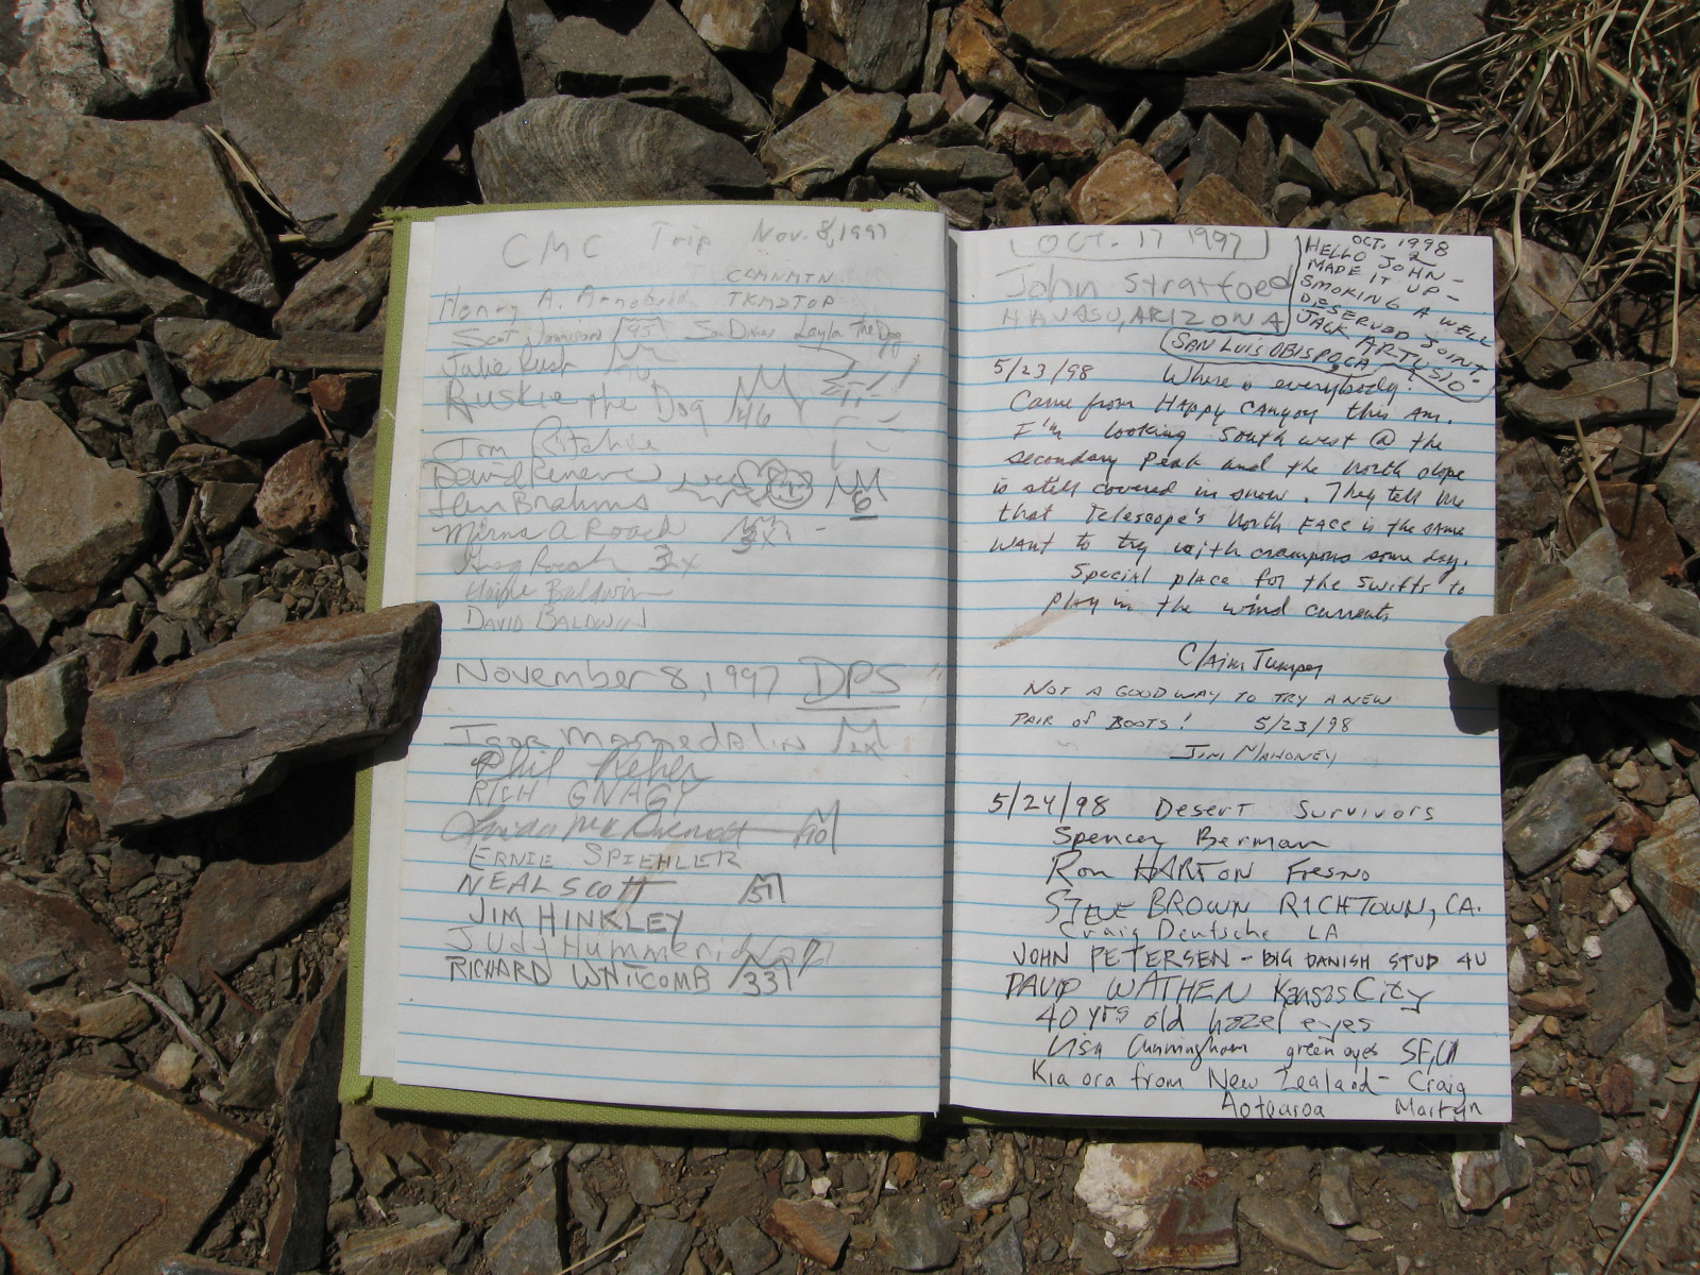 CMC Trip Nov. 8, 1997
Henry A.
TKM2TOP
Layla The Dog
Julie Rush
Ruskie the Dog M46
Jim Ritchie
Brahms
Mirna A Roach
Greg Roach 3x
Baldwin
DAVID BALDWIN
November 8, 1997 DPS
Igor Mamedalin 2x
Phil Reher
RICH GNAGY
ERNIE SPIEHLER
NEAL SCOTT M
JIM HINKLEY
Judy Hummerich
RICHARD WHITCOMB 33
OCT. 17 1997
John Stratfoed
HAVASU, ARIZONA
OCT. 1998
HELLO JOHN -
MADE IT UP -
SMOKING A WELL
DESERVED JOINT.
JACK ARTUSIO
SAN LUIS OBISPO, CA
5/23/98 Where is everybody?
Came from Happy Canyon this am.
I'm looking South west @ the
secondary peak and the north slope
is still covered in snow. They tell me
that Telescope's North FACE is the same
Want to try with crampons some day.
Special place for the swifts to
play in the wind currents
Claim Jumper
NOT A GOOD WAY TO TRY A NEW
PAIR OF BOOTS! 5/23/98
JIM MAHONEY
5/24/98 Desert Survivors
Spencer Berman
Ron HARTON Fresno
STEVE BROWN RICHTOWN, CA.
Craig Deutsche LA
JOHN PETERSEN - BIG DANISH STUD 4U
DAVID WATHEN Kansas City
40 yrs old hazel eyes
Lisa Cunningham green eyes SF, CA
Kia ora from New Zealand - Craig
Aotearoa Martyn